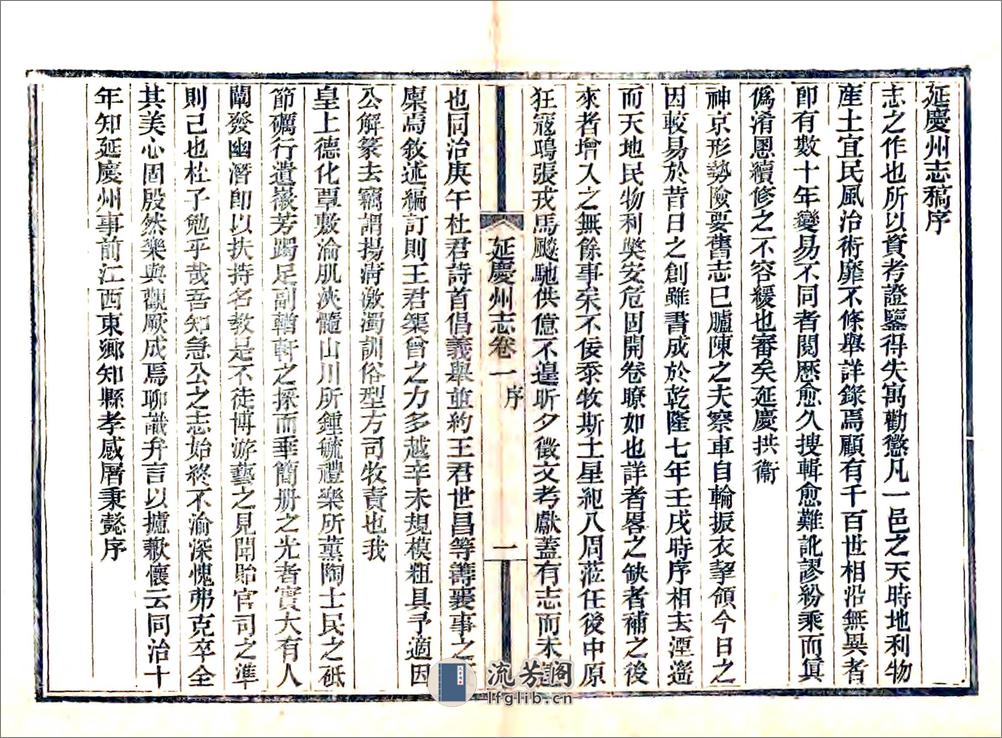 延慶州志稿序
志之作也所以資考證鑒得失寓勸懲凡一邑之天時地利物
產土宜民風治術靡不條舉詳錄焉顧有千百世相沿無異者
卽有數十年變易不同者閱歷愈久搜輯愈難訛謬紛乘而眞
僞淆恩續修之不容緩也審矣延慶拱衞
神京形勢險要舊志已臚陳之夫察車自輪振衣挈領今日之
因較易於昔日之創雖書成於乾隆七年壬戌時序相去潭邈
而天地民物利獘安危固開卷瞭如也詳者畧之缺者補之後
來者增入之無餘事矣不佞忝牧斯土星紀八周蒞任後中原
狂寇鴟張戎馬飈馳供億不遑昕夕徵文考獻蓋有志而未
延慶州志卷一 序 一
也同治庚午杜君詩首倡義舉並約王君世昌等籌襄事之
廪焉敘述編訂則王君榘曾之力多越辛未規模粗具予適因
公解篆去竊謂揚淸激濁訓俗型方司牧責也我
皇上德化覃敷淪肌浹髓山川所鍾毓禮樂所薰陶士民之砥
節礪行遺嶶芳躅足副輶軒之採而垂簡册之光者實大有人
闡發幽潛卽以扶持名教是不徒博游藝之見聞貽官司之準
則已也杜子勉乎哉吾知急公之志始終不渝深愧弗克卒全
其美心固殷然樂與觀厥成焉聊識弁言以攄歉懷云同治十
年知延慶州事前江西東鄉知縣孝感屠秉懿序
流芳閣
lfglib.cn